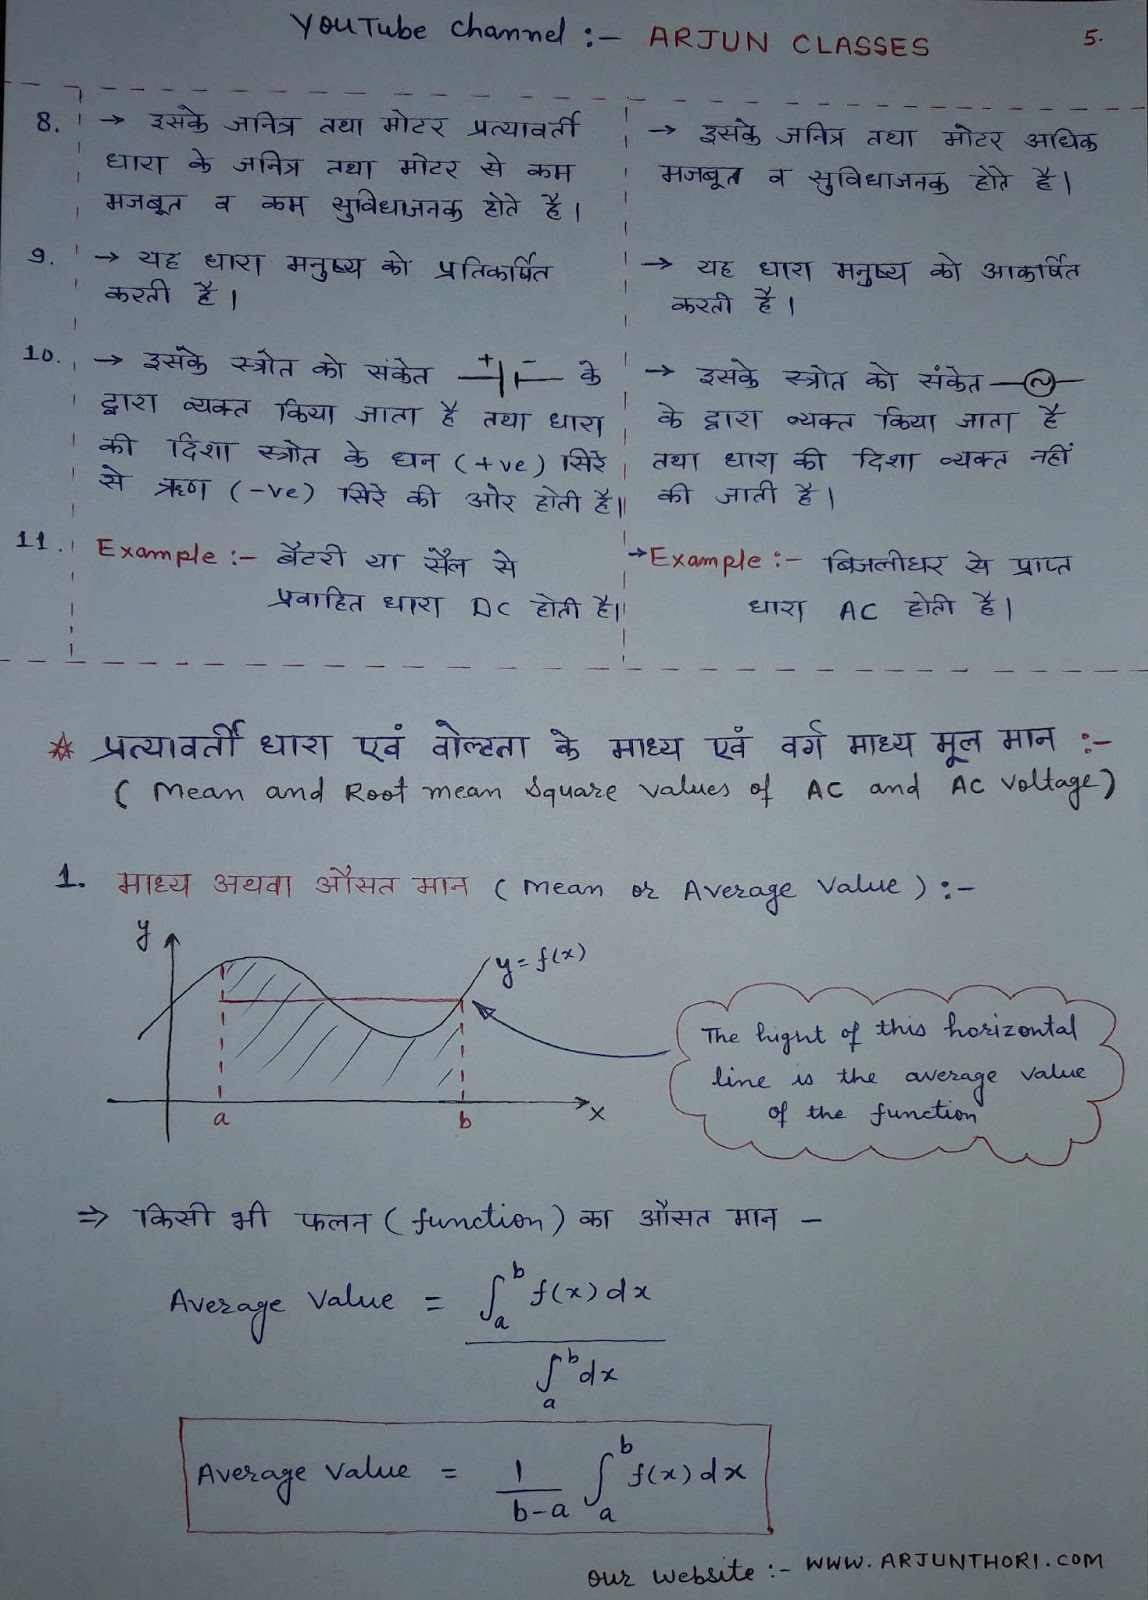 YouTube Channel :- ARJUN CLASSES
5.
8. → इसके जनित्र तथा मोटर प्रत्यावर्ती
धारा के जनित्र तथा मोटर से कम
मजबूत व कम सुविधाजनक होते है।
→ इसके जनित्र तथा मोटर अधिक
मजबूत व सुविधाजनक होते है।
9. → यह धारा मनुष्य को प्रतिकर्षित
करती है।
→ यह धारा मनुष्य को आकर्षित
करती है।
10. → इसके स्त्रोत को संकेत + - के
द्वारा व्यक्त किया जाता है तथा धारा
की दिशा स्त्रोत के धन (+ve) सिरे
से ऋण (-ve) सिरे की ओर होती है।
→ इसके स्त्रोत को संकेत ~
के द्वारा व्यक्त किया जाता है
तथा धारा की दिशा व्यक्त नहीं
की जाती है।
11. Example :- बैटरी या सैल से
प्रवाहित धारा DC होती है।
→ Example :- बिजलीघर से प्राप्त
धारा AC होती है।
☆ प्रत्यावर्ती धारा एवं वोल्टता के माध्य एवं वर्ग माध्य मूल मान :-
( Mean and Root mean Square values of AC and AC voltage)
1. माध्य अथवा औसत मान ( Mean or Average Value ) :-
y
y = f(x)
a
b
x
The hight of this horizontal
line is the average value
of the function
⇒ किसी भी फलन ( function ) का औसत मान -
Average Value = ∫_a^b f(x) dx / ∫_a^b dx
Average Value = 1/(b-a) ∫_a^b f(x) dx
Our Website :- WWW.ARJUNTHORI.COM